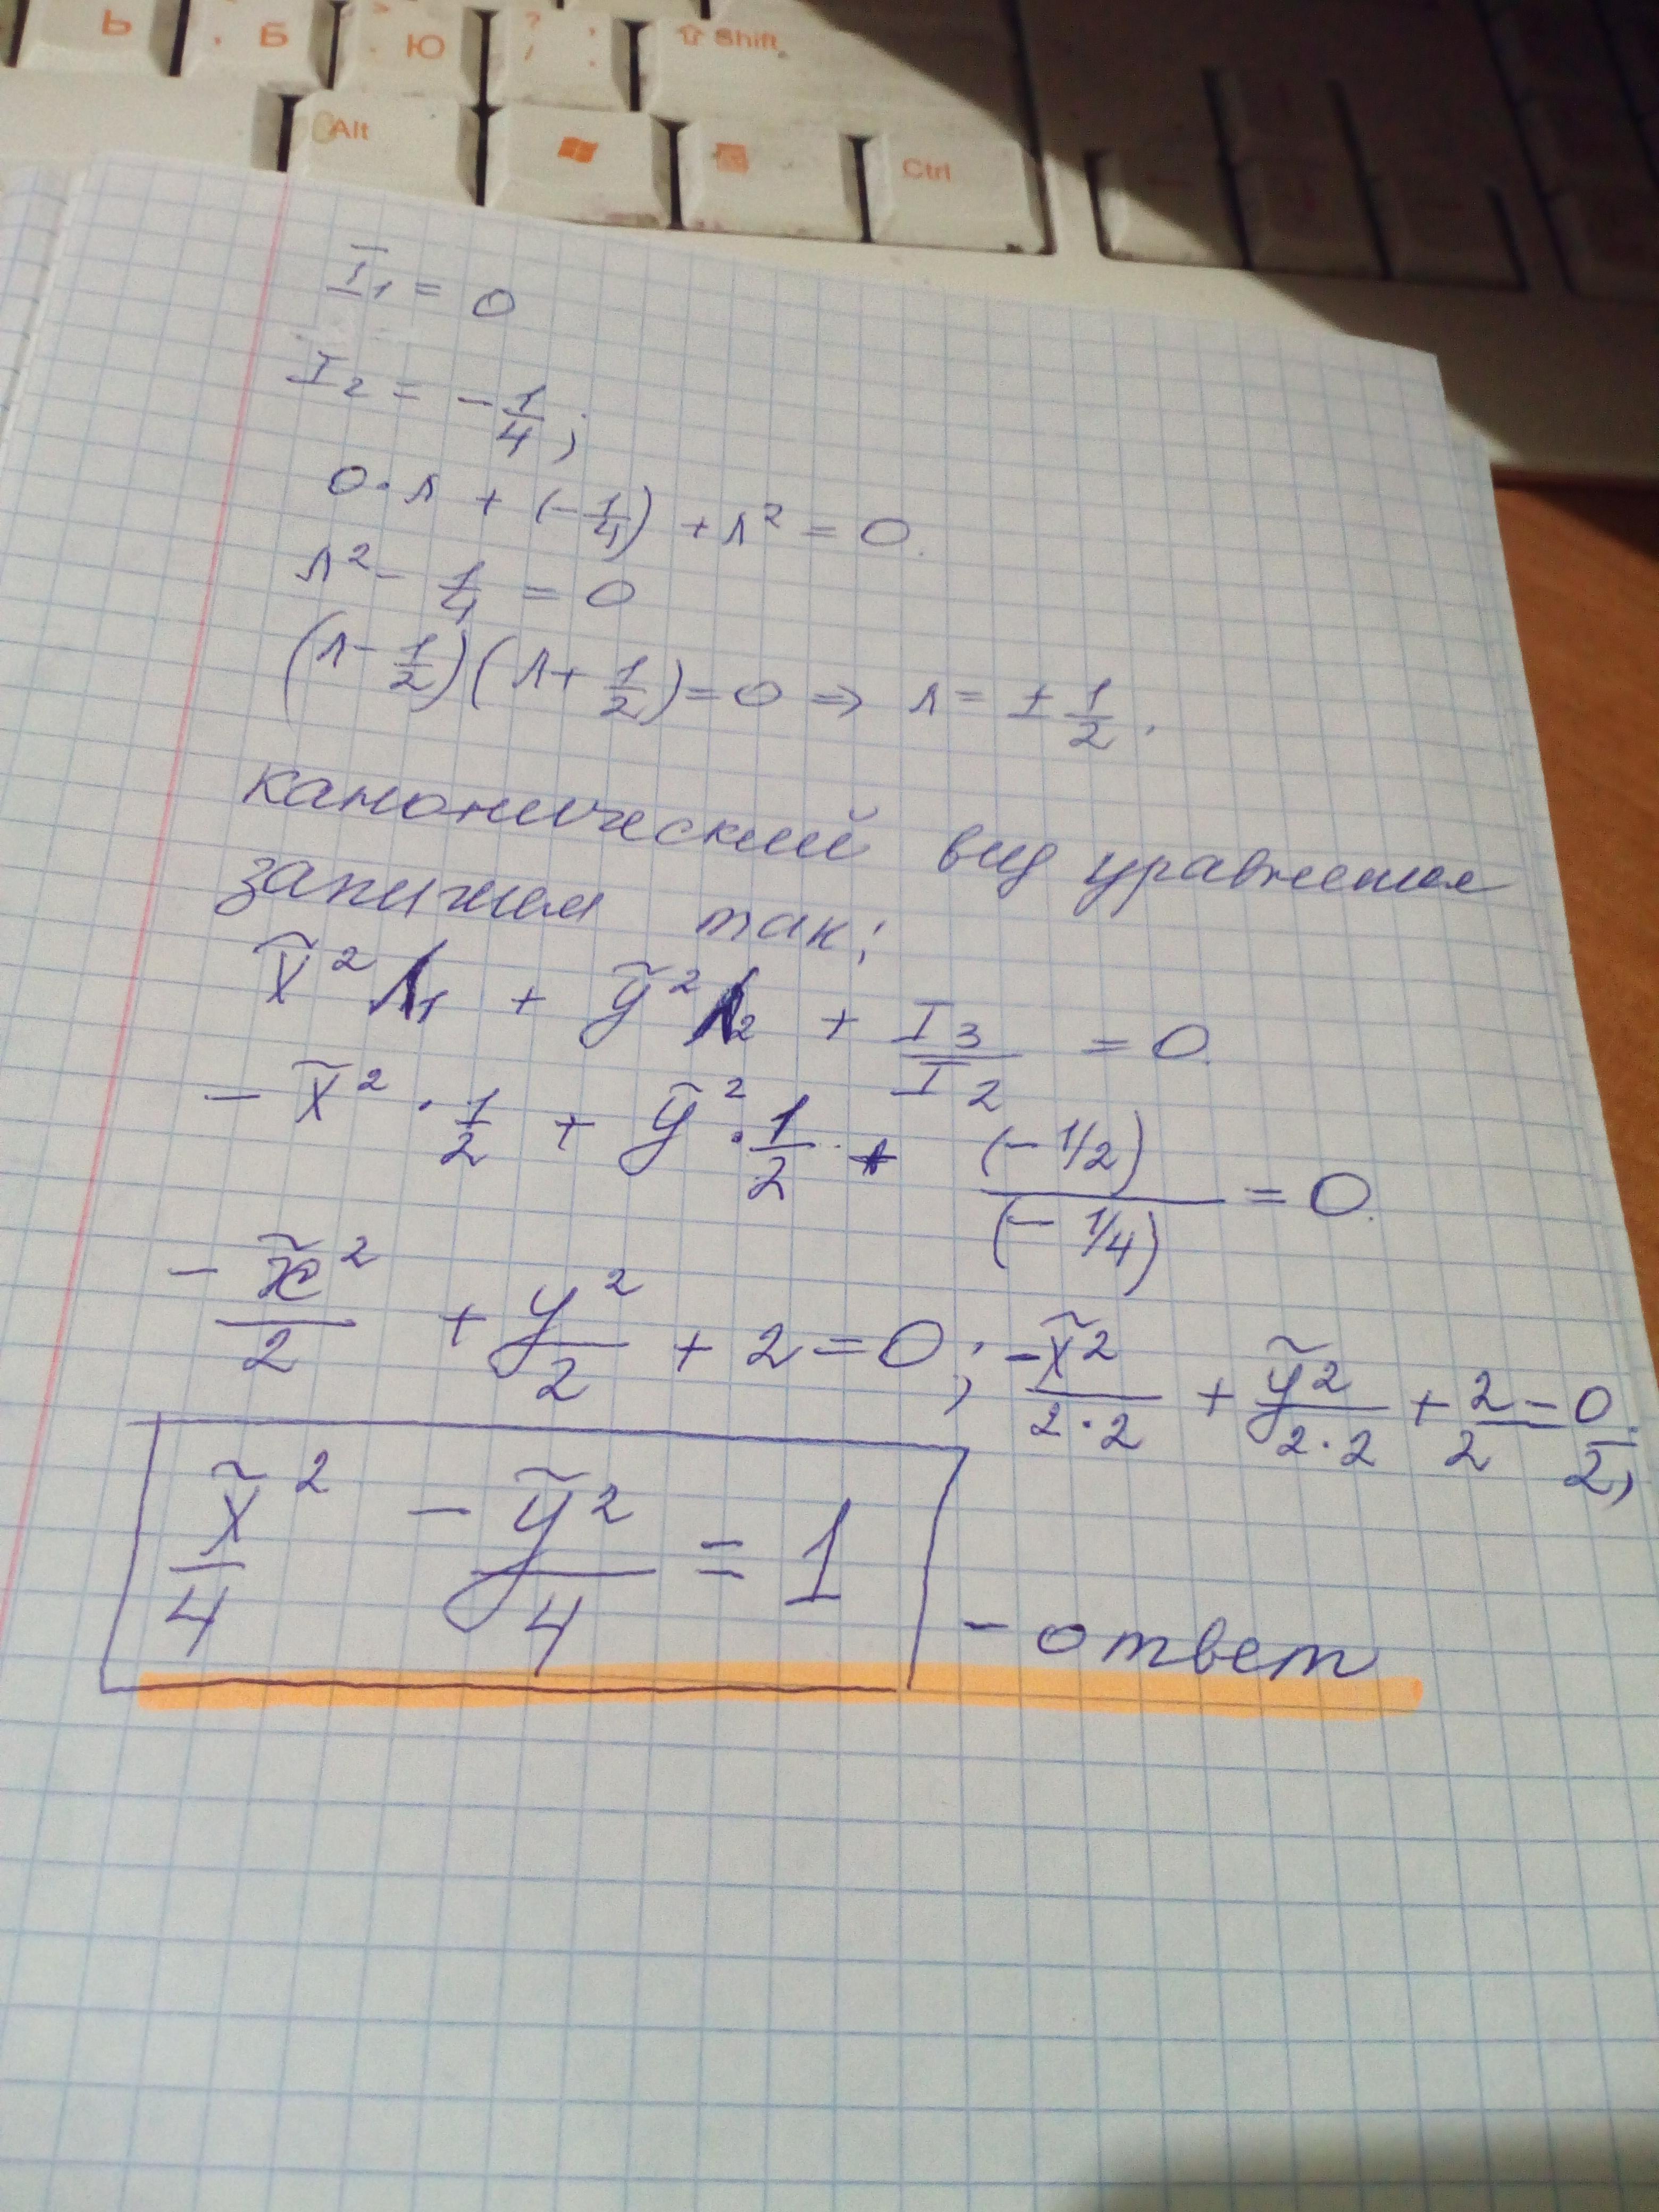 Ь , Б > . Ю ? / , . ⇧ Shift
Alt Ctrl
I₁ = 0
I₂ = -1/4;
0·λ + (-1/4) + λ² = 0.
λ² - 1/4 = 0
(λ - 1/2)(λ + 1/2) = 0 ⇒ λ = ± 1/2.
канонический вид уравнения
запишем так:
x̃² λ₁ + ỹ² λ₂ + I₃/I₂ = 0.
- x̃² · 1/2 + ỹ² · 1/2 + (-1/2)/(-1/4) = 0.
- x̃²/2 + y²/2 + 2 = 0; -x̃²/(2·2) + ỹ²/(2·2) + 2/2 = 0/2;
x̃²/4 - ỹ²/4 = 1 - ответ